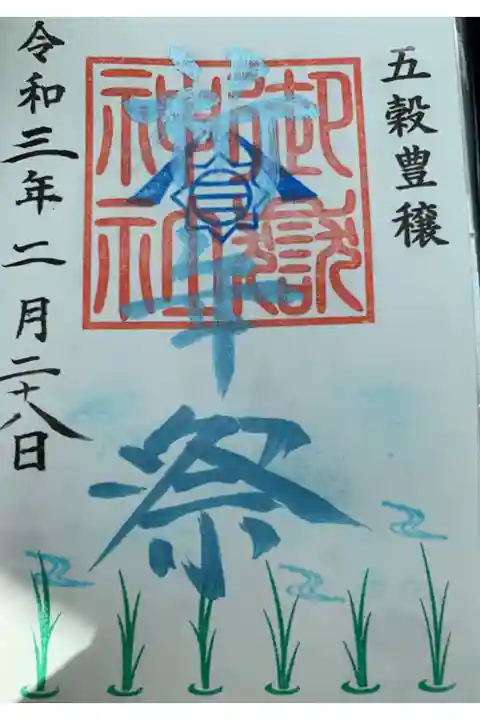 五穀豊穣
祈年祭
御嶽
神社
令和三年二月二十八日